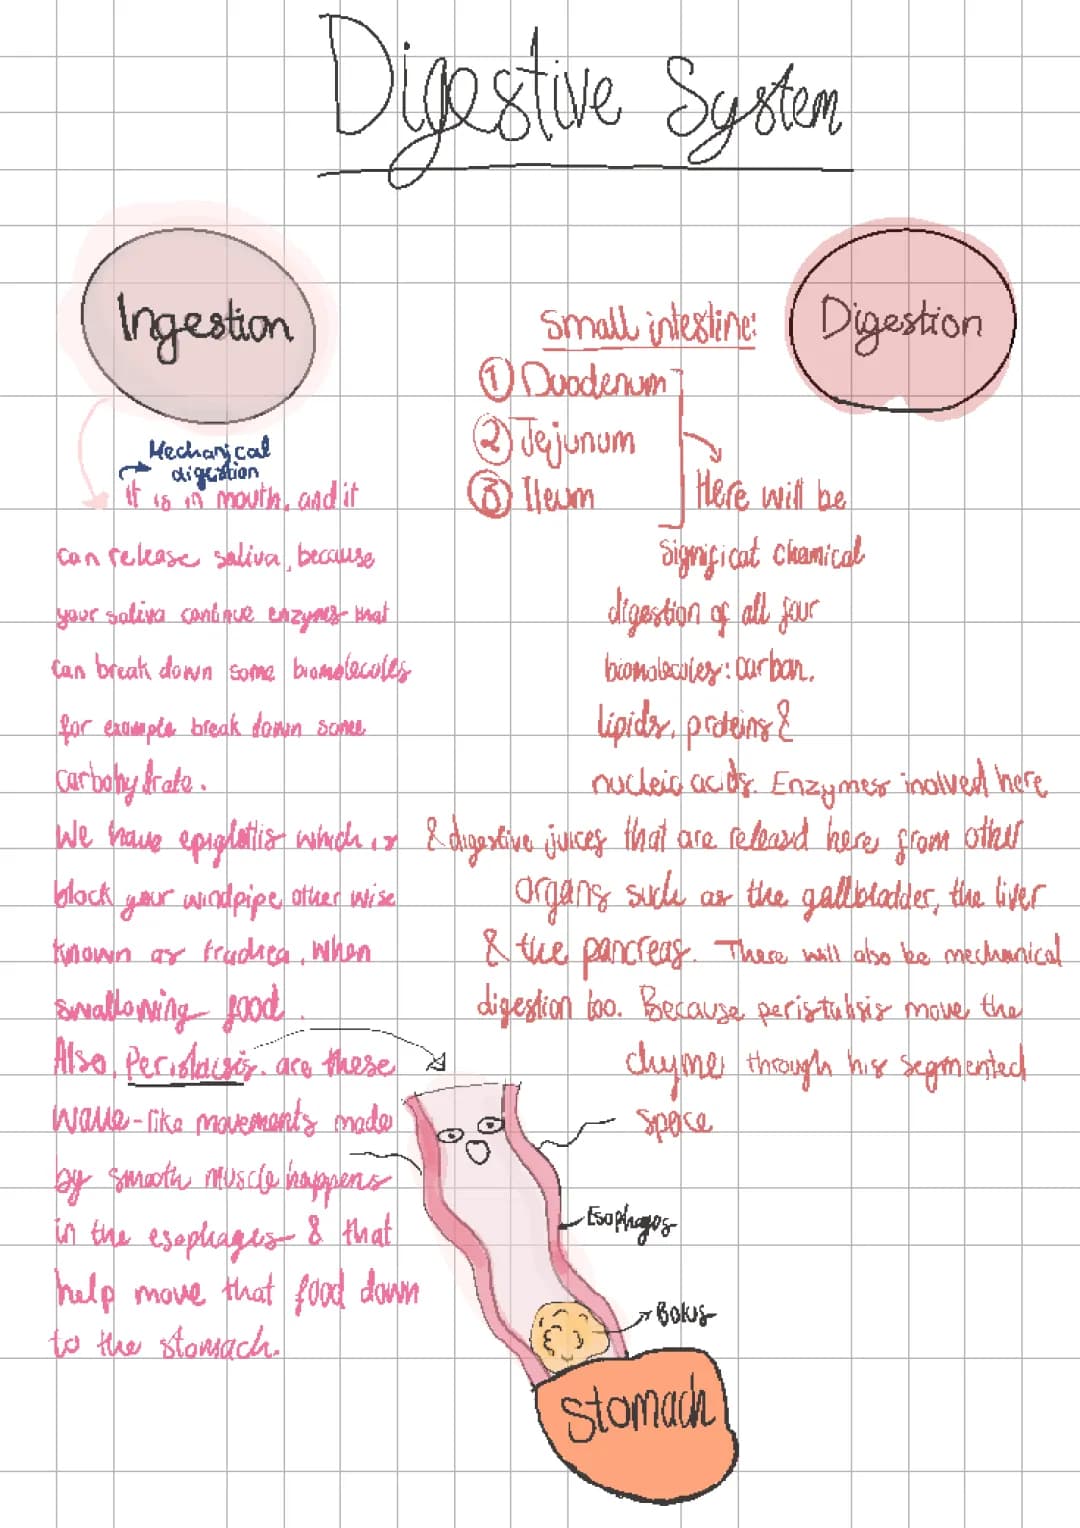 Digestive System
Ingestion
Mechanical
digestion
it is in mouth, and it
can release saliva, because
your saliva continue enzymes that
can break down some biomolecules
for example break down some
carbohydrate.
We have epiglottis which is
block your windpipe, other wise
known as trachea, when
swallowing food.
Also, Peristalcsis. are these
wave-like movements made
by smooth muscle happens
in the esophagus & that
help move that food down
to the stomach.
Digestion
Small intestine:
① Duodenum
② Jejunum
③ Ileum
Here will be
significat chemical
digestion of all four
biomolecules: carban,
lipids, proteins &
nucleic acids. Enzymes inolved here
& digestive juices that are releasd here from other
organs such as the gallbladder, the liver
& the pancreas. There will also be mechanical
digestion too. Because peristalsis move the
chyme through his segmented
space
Esophagos
Bolus
Stomach